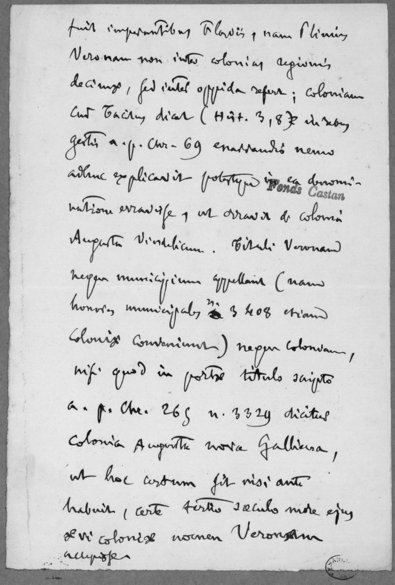 fuit imperantibus Flaviis, nam Plinius
Veronam non inter colonias regionis
decimæ, sed inter oppida refert; coloniam
cur Tacitus dicat (Hist. 3, 8) in rebus
gestis a. p. Chr. 69 enarrandis nemo
adhuc explicavit potestque in ea denomi-
Fonds Castan
natione erravisse, ut erravit de colonia
Augusta Vindelicum. Tituli Veronam
neque municipium appellant (nam
honores municipales n. 3408 etiam
coloniæ conveniunt) neque coloniam,
nisi quod in portæ titulo scripto
a. p. Chr. 265 n. 3329 dicitur
colonia Augusta nova Galliena,
ut hoc certum sit nisi ante
habuit, certe tertio sæculo medio ejus
ævi coloniæ nomen Veronam
accepisse